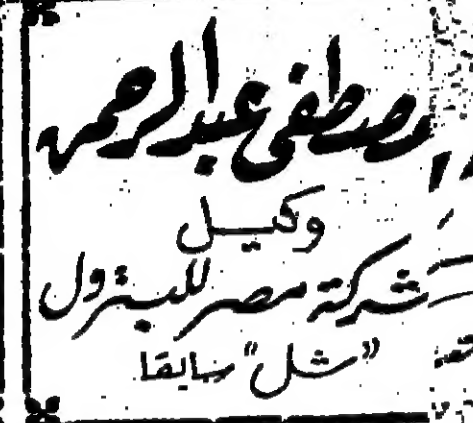 مصطفى عبد الرحمن
وكيل
شركة مصر للبترول
"شل" سابقا